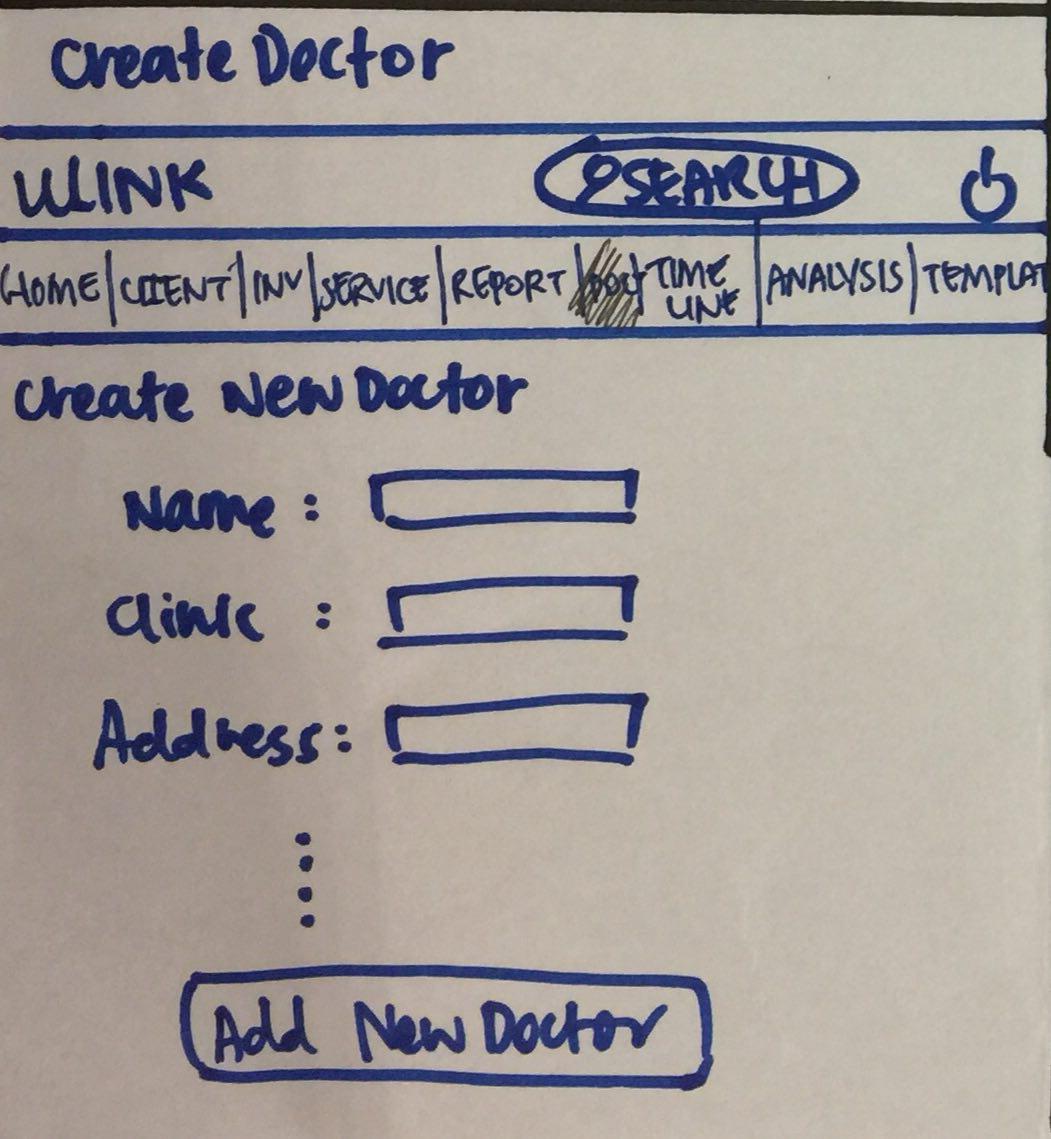 Create Doctor
ULINK SEARCH
HOME | CLIENT | INV | SERVICE | REPORT | TIME LINE | ANALYSIS | TEMPLAT
Create New Doctor
Name :
Clinic :
Address :
Add New Doctor